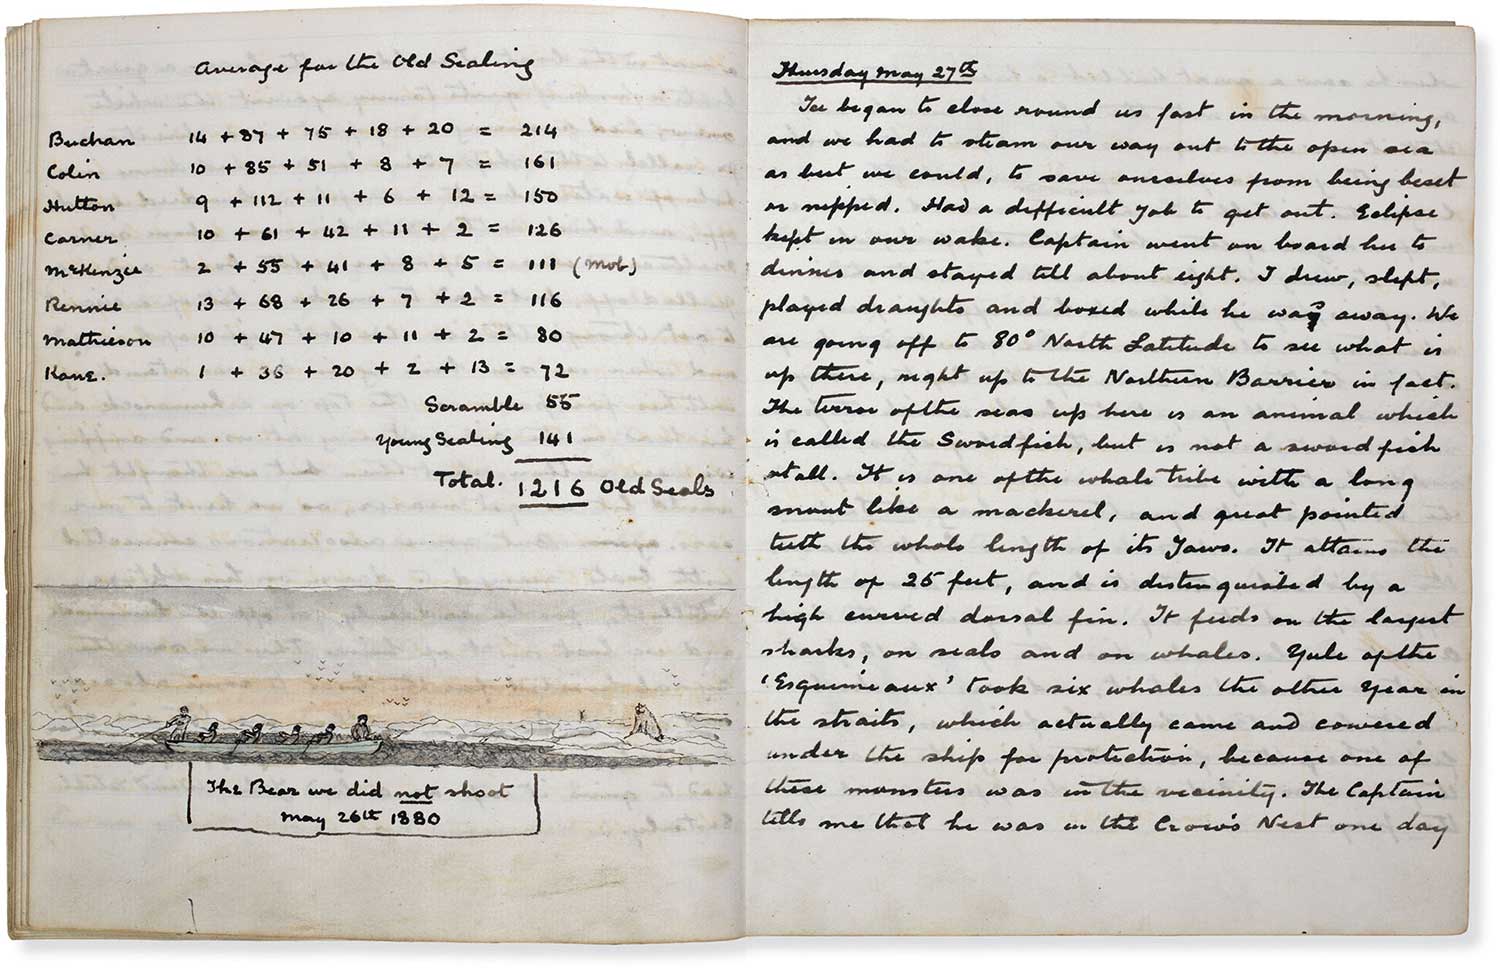 Average for the Old Sealing
Buchan 14 + 87 + 75 + 18 + 20 = 214
Colin 10 + 85 + 51 + 8 + 7 = 161
Hutton 9 + 112 + 11 + 6 + 12 = 150
Carner 10 + 61 + 42 + 11 + 2 = 126
McKenzie 2 + 55 + 41 + 8 + 5 = 111 (mob)
Rennie 13 + 68 + 26 + 7 + 2 = 116
Mathieson 10 + 47 + 10 + 11 + 2 = 80
Kane. 1 + 36 + 20 + 2 + 13 = 72
Scramble 55
Young Sealing 141
Total. 1216 Old Seals
The Bear we did not shoot
May 26th 1880
Thursday May 27th
Ice began to close round us fast in the morning,
and we had to steam our way out to the open sea
as best we could, to save ourselves from being beset
or nipped. Had a difficult job to get out. Eclipse
kept in our wake. Captain went on board her to
dinner and stayed till about eight. I drew, slept,
played draughts and boxed while he was away. We
are going off to 80° North Latitude to see what is
up there, right up to the Northern Barrier in fact.
The terror of the seas up here is an animal which
is called the Swordfish, but is not a swordfish
at all. It is one of the whale tribe with a long
snout like a mackerel, and great pointed
teeth the whole length of its Jaws. It attains the
length of 25 feet, and is distinguished by a
high curved dorsal fin. It feeds on the largest
sharks, on seals and on whales. Yule of the
'Esquimeaux' took six whales the other year in
the straits, which actually came and cowered
under the ship for protection, because one of
these monsters was in the vicinity. The Captain
tells me that he was in the Crow's Nest one day